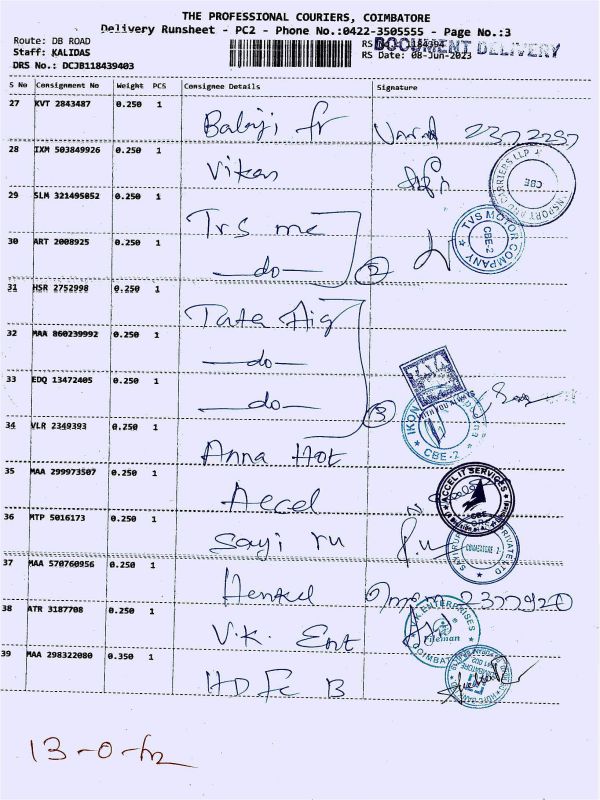 THE PROFESSIONAL COURIERS, COIMBATORE
Delivery Runsheet - PC2 - Phone No.:0422-3505555 - Page No.:3
Route: DB ROAD
DOCUMENT DELIVERY
Staff: KALIDAS
RS Date: 08-Jun-2023
DRS No.: DCJB118439403
S No Consignment No Weight PCS Consignee Details Signature
27 KVT 2843487 0.250 1 Babiji fr
28 IXM 503849926 0.250 1 Vikas
29 SLM 321495052 0.250 1 Tvs mc
30 ART 2008925 0.250 1 —do— 2
31 HSR 2752998 0.250 1 Tata Aig
32 MAA 860239992 0.250 1 —do—
33 EDQ 13472405 0.250 1 —do— 3
34 VLR 2349393 0.250 1 Anna Hot
35 MAA 299973507 0.250 1 Accel
36 MTP 5016173 0.250 1 Sayi ru P.u
37 MAA 570760956 0.250 1 Henkel
38 ATR 3187708 0.250 1 V.K. Ent
39 MAA 298322080 0.350 1 HDFC B
CARRIERS LLP
CBE
TVS MOTOR COMPANY
CBE-2
WITH YOU ALWAYS
IKON
CBE-2
ACCEL IT SERVICES
CBE
COIMBATORE
PRIVATE LTD
ENTERPRISES
COIMBATORE